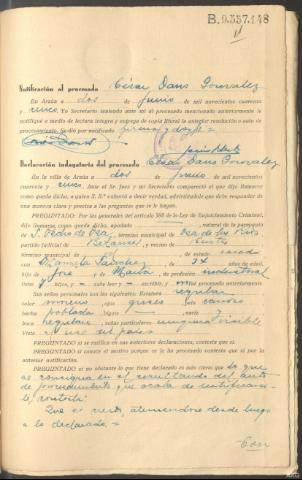 B.9.357.148
Notificación al procesado César Dans Gonzalez
En Arzúa a dos de junio de mil novecientos cuarenta
y cinco. Yo Secretario teniendo ante mí al procesado mencionado anteriormente le
notifiqué a medio de lectura íntegra y entrega de copia literal la anterior resolución o auto de
procesamiento. Se dió por notificado firma y doy fe =
Declaración indagatoria del procesado César Dans Gonzalez
En la villa de Arzúa a dos de junio de mil novecientos
cuarenta y cinco. Ante el Sr. Juez y mi Secretario compareció el que dijo llamarse
como queda dicho, a quien S. S.ª exhortó a decir verdad, advirtiéndole que debe responder
de una manera clara y precisa a las preguntas que se le hagan.
PREGUNTADO: Por las generales del artículo 388 de la Ley de Enjuiciamiento Criminal,
dijo llamarse como queda dicho, apodado natural de la parroquia
de S. Pedro de Oza, término municipal de Oza de los Rios
partido judicial de Betanzos, y vecino de
término municipal de de estado casado
con Manuela Sánchez de 34 años de edad,
hijo de José y de María, de profesión industrial
tiene hijos, sabe leer y escribir, procesado anteriormente
Sus señas personales son las siguientes: Estatura regular
color moreno ojos grises pelo canoso
barba poblada bigote nariz
boca regular señas particulares ninguna visible
Viste a uso del país
PREGUNTADO si se ratifica en sus anteriores declaraciones, contesta que sí.
PREGUNTADO si conoce el motivo porque se le ha procesado contesta que sí por la
anterior notificación.
PREGUNTADO si no obstante lo que tiene declarado es más cierto que lo que
se consigna en el resultando del auto
de procesamiento que acaba de notificarse-
le contestó:
Que es cierto, ateniéndose desde luego
a lo declarado =